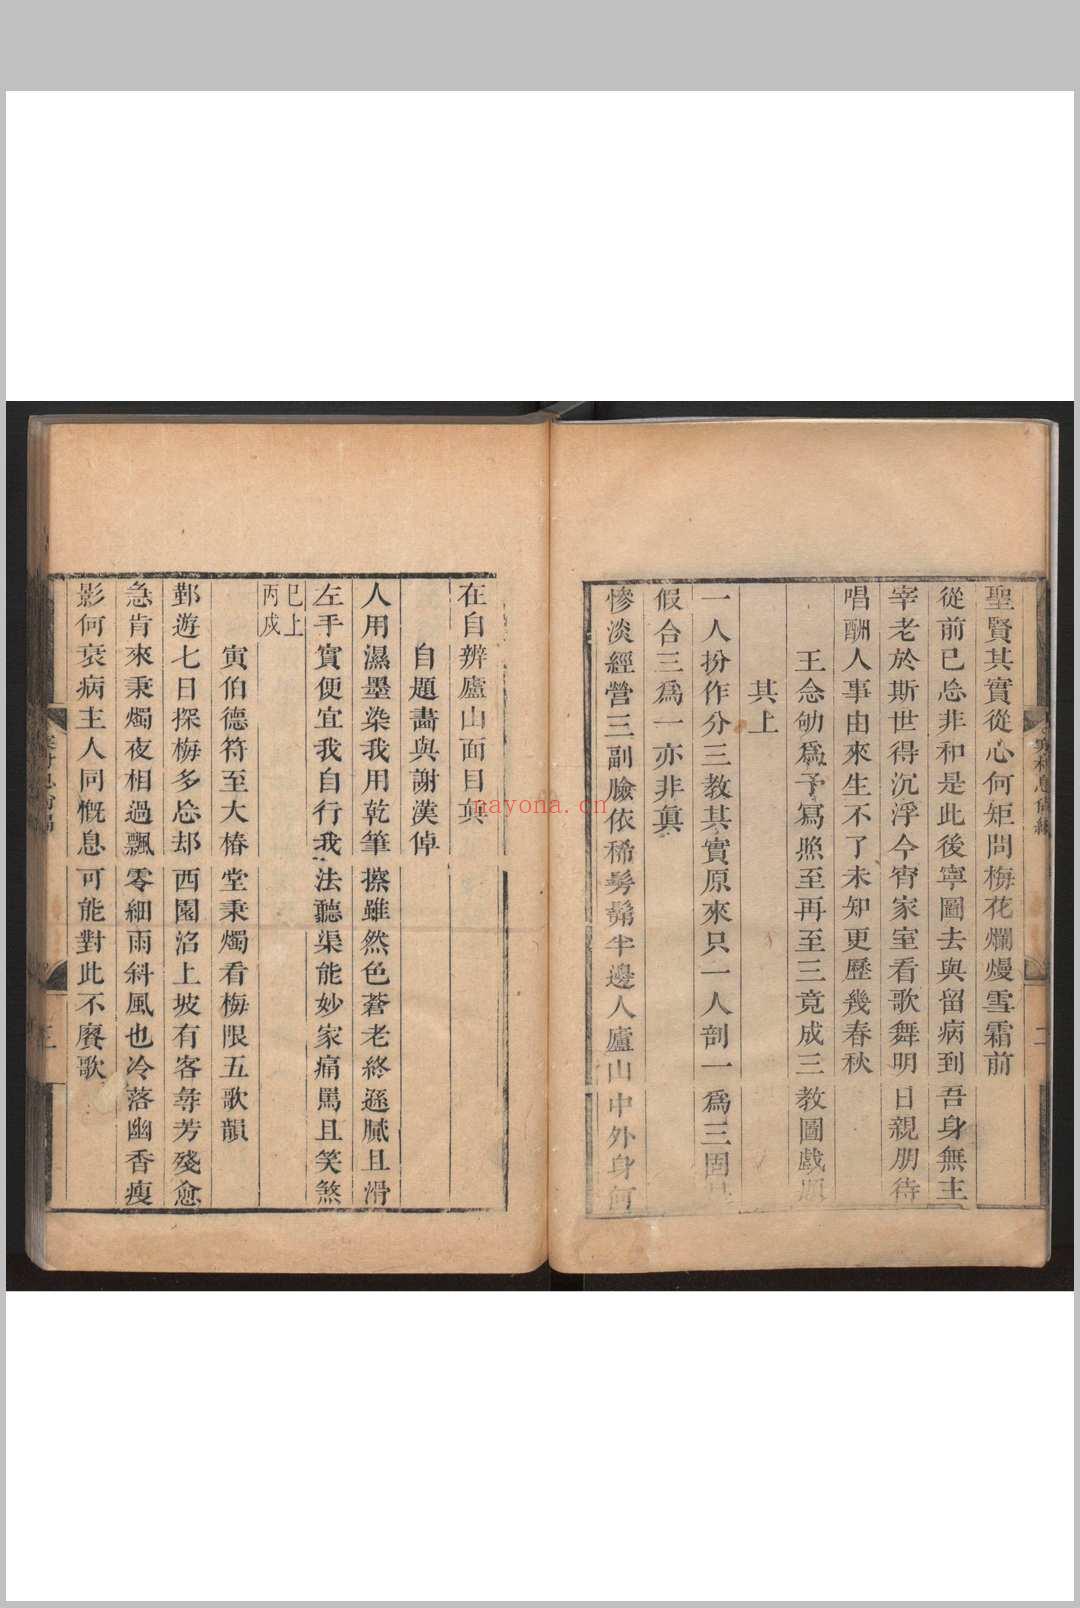 聖賢其實從心何矩問梅花爛熳雪霜前
從前已忩非和是此後寧圖去與留病到吾身無主
宰老於斯世得沉浮今宵家室看歌舞明日親朋待
唱酬人事由來生不了未知更歷幾春秋
王念劬爲予寫照至再至三竟成三教圖戲題
其上
一人扮作分三教其實原來只一人剖一爲三固
假合三爲一亦非眞
慘淡經營三副臉依稀髣髴半邊人廬山中外身何
在自辨廬山面目眞
自題畫與謝漢倬
人用濕墨染我用乾筆擦雖然色蒼老終遜膩且滑
左手實便宜我自行我法聽渠能妙家痛罵且笑煞
已上
丙戌
寅伯德符至大椿堂秉燭看梅限五歌韻
鄞遊七日探梅多忩却西園洺上坡有客尋芳殘愈
急肯來秉燭夜相過飄零細雨斜風也冷落幽香瘦
影何衰病主人同慨息可能對此不賡歌
nayona.cn